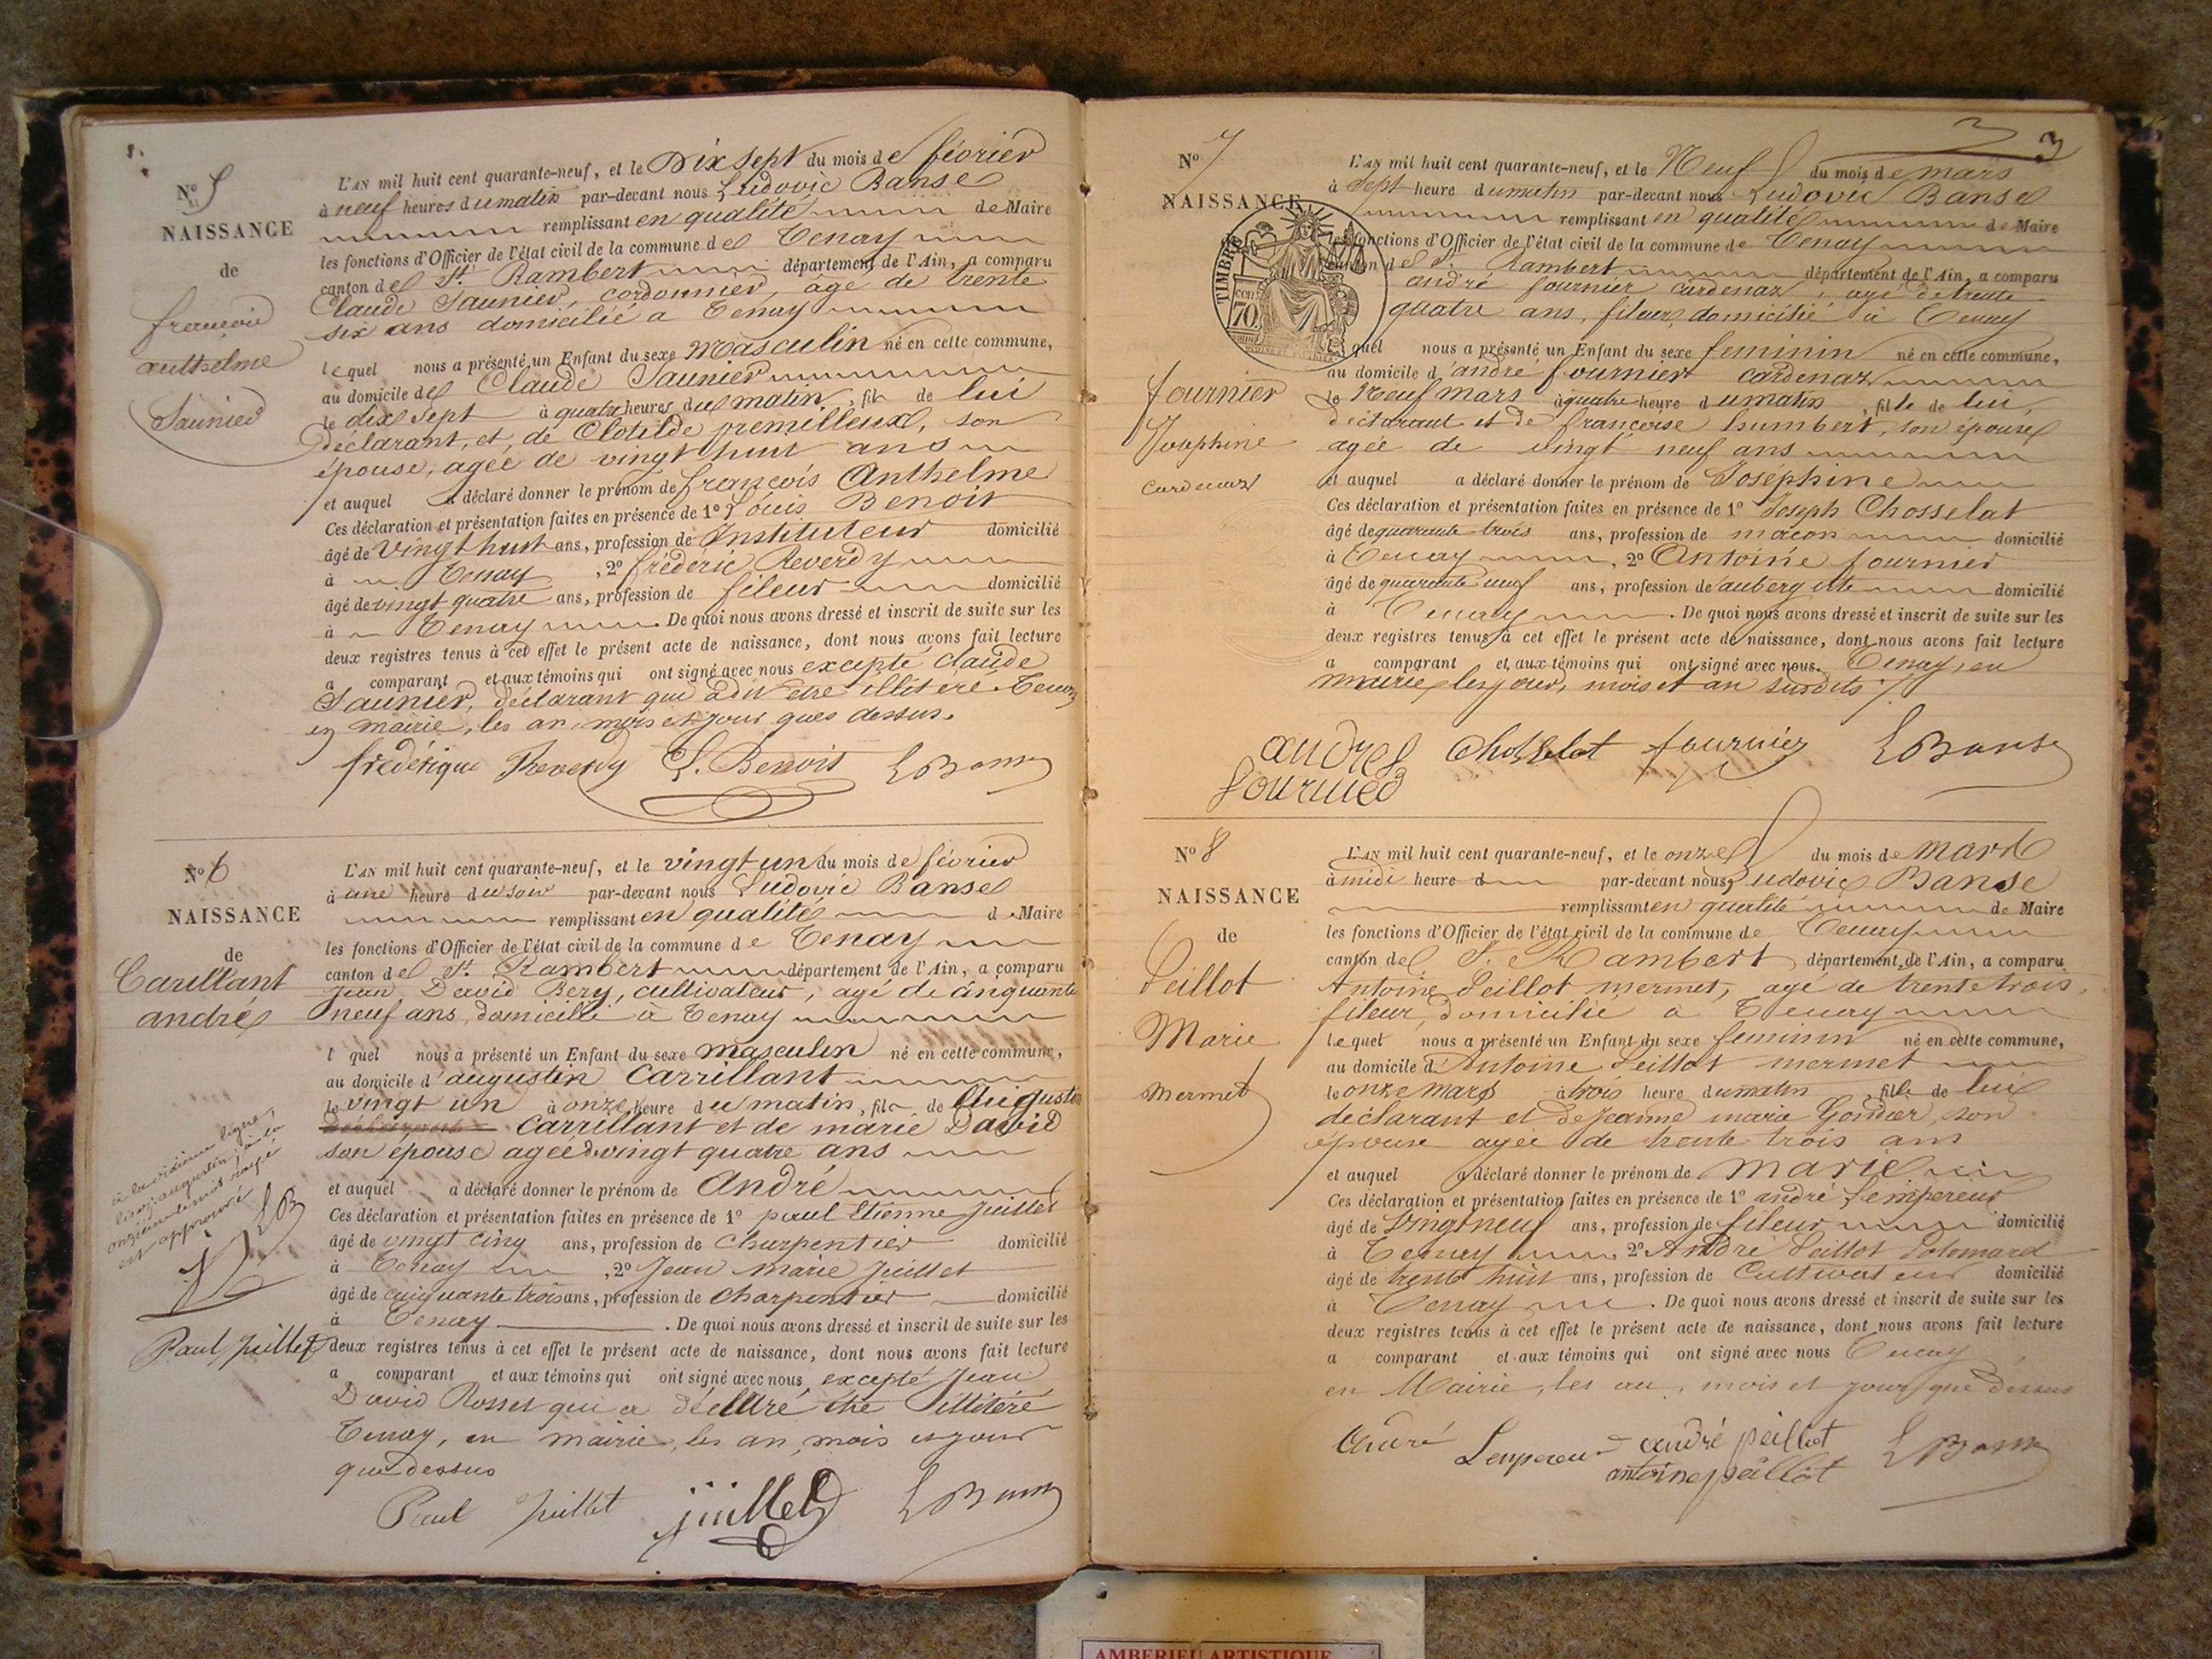 N.º 5
NAISSANCE
de
françois
anthelme
Saunier
L'AN mil huit cent quarante-neuf, et le Dix sept du mois de février
à neuf heures du matin par-devant nous Ludovic Banse
remplissant en qualité de Maire
les fonctions d'Officier de l'état civil de la commune de Tenay
canton de St. Rambert département de l'Ain, a comparu
Claude Saunier, cordonnier, âgé de trente
six ans domicilié à Tenay
lequel nous a présenté un Enfant du sexe masculin né en cette commune,
au domicile de Claude Saunier
le dix sept à quatre heures du matin, fils de lui
déclarant, et de Clotilde premilleux, son
épouse, agée de vingt huit ans
et auquel a déclaré donner le prénom de françois Anthelme
Ces déclaration et présentation faites en présence de 1º Louis Benoit
âgé de vingt huit ans, profession de Instituteur domicilié
à Tenay, 2º frédéric Reverdy
âgé de vingt quatre ans, profession de fileur domicilié
à Tenay. De quoi nous avons dressé et inscrit de suite sur les
deux registres tenus à cet effet le présent acte de naissance, dont nous avons fait lecture
a comparant et aux témoins qui ont signé avec nous excepté claude
Saunier, déclarant qui a dit être illitéré. Tenay
en mairie, les an, mois et jour que dessus.
frédérique Reverdy L. Benoit L Banse
Nº 6
NAISSANCE
de
Carillant
andré
L'AN mil huit cent quarante-neuf, et le vingt un du mois de février
à une heure du soir par-devant nous Ludovic Banse
remplissant en qualité de Maire
les fonctions d'Officier de l'état civil de la commune de Tenay
canton de St. Rambert département de l'Ain, a comparu
Jean David Bery, cultivateur, agé de cinquante
neuf ans, domicilié à Tenay
l quel nous a présenté un Enfant du sexe masculin né en cette commune,
au domicile d'augustin Carrillant
le vingt un à onze heure du matin, fils de Augustin
Carrillant et de marie David
son épouse agée de vingt quatre ans
et auquel a déclaré donner le prénom de André
Ces déclaration et présentation faites en présence de 1º paul Etienne Juillet
âgé de vingt cinq ans, profession de Charpentier domicilié
à Tenay, 2º Jean Marie Juillet
âgé de cinquante trois ans, profession de Charpentier domicilié
à Tenay. De quoi nous avons dressé et inscrit de suite sur les
deux registres tenus à cet effet le présent acte de naissance, dont nous avons fait lecture
a comparant et aux témoins qui ont signé avec nous excepté Jean
David Rosset qui a déclaré être illitéré
Tenay, en mairie, les an, mois et jour
que dessus
Paul Juillet juillet L Banse
ligne,
lisez augustin, à la
onzième le mot rayé
est approuvé
LB
Paul Juillet
3
3
Nº 7
NAISSANCE
TIMBRE
70
fournier
Josephine
cardenaz
L'AN mil huit cent quarante-neuf, et le Neuf du mois de mars
à sept heure du matin par-devant nous Ludovic Banse
remplissant en qualité de Maire
les fonctions d'Officier de l'état civil de la commune de Tenay
canton de St. Rambert département de l'Ain, a comparu
andré fournier cardenaz, agé de trente
quatre ans, fileur, domicilié à Tenay
lequel nous a présenté un Enfant du sexe feminin né en cette commune,
au domicile d'andré fournier cardenaz
le Neuf mars à quatre heure du matin, fille de lui,
déclarant et de françoise humbert, son épouse
agée de vingt neuf ans
et auquel a déclaré donner le prénom de Joséphine
Ces déclaration et présentation faites en présence de 1º Joseph Chosselat
âgé de quarante trois ans, profession de maçon domicilié
à Tenay, 2º Antoine fournier
âgé de quarante neuf ans, profession de aubergiste domicilié
à Tenay. De quoi nous avons dressé et inscrit de suite sur les
deux registres tenus à cet effet le présent acte de naissance, dont nous avons fait lecture
a comparant et aux témoins qui ont signé avec nous. Tenay, en
mairie les jour, mois et an susdits
andré Chosselat fournier L Banse
fournier
Nº 8
NAISSANCE
de
Peillot
Marie
mermet
L'AN mil huit cent quarante-neuf, et le onze du mois de mars
à midi heure d par-devant nous Ludovic Banse
remplissant en qualité de Maire
les fonctions d'Officier de l'état civil de la commune de Tenay
canton de St. Rambert département de l'Ain, a comparu
Antoine Peillot mermet, agé de trente trois,
fileur, domicilié à Tenay
lequel nous a présenté un Enfant du sexe feminin né en cette commune,
au domicile d'Antoine Peillot mermet
le onze mars à trois heure du matin, fille de lui
déclarant et de jeanne marie Gondier, son
épouse agée de trente trois ans
et auquel a déclaré donner le prénom de Marie
Ces déclaration et présentation faites en présence de 1º andré Lempereur
âgé de vingt neuf ans, profession de fileur domicilié
à Tenay 2º André Peillot Polomard
âgé de trente huit ans, profession de Cultivateur domicilié
à Tenay. De quoi nous avons dressé et inscrit de suite sur les
deux registres tenus à cet effet le présent acte de naissance, dont nous avons fait lecture
a comparant et aux témoins qui ont signé avec nous Tenay
en Mairie, les an, mois et jour que dessus
André Lempereur andré peillot L Banse
antoine peillot
AMBERIEU ARTISTIQUE